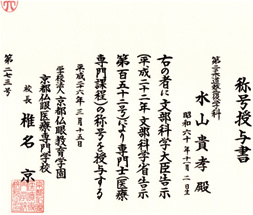 称号授与書
第二柔道整復学科
水山貴孝殿
昭和六十年十一月二日生
右の者に文部科学大臣告示
(平成二十二年文部科学省告示
第百五十二号)により専門士(医療
専門課程)の称号を授与する
平成二十六年三月十五日
学校法人京都仏眼教育学園
京都仏眼医療専門学校
校長 椎名 京
第二七三号